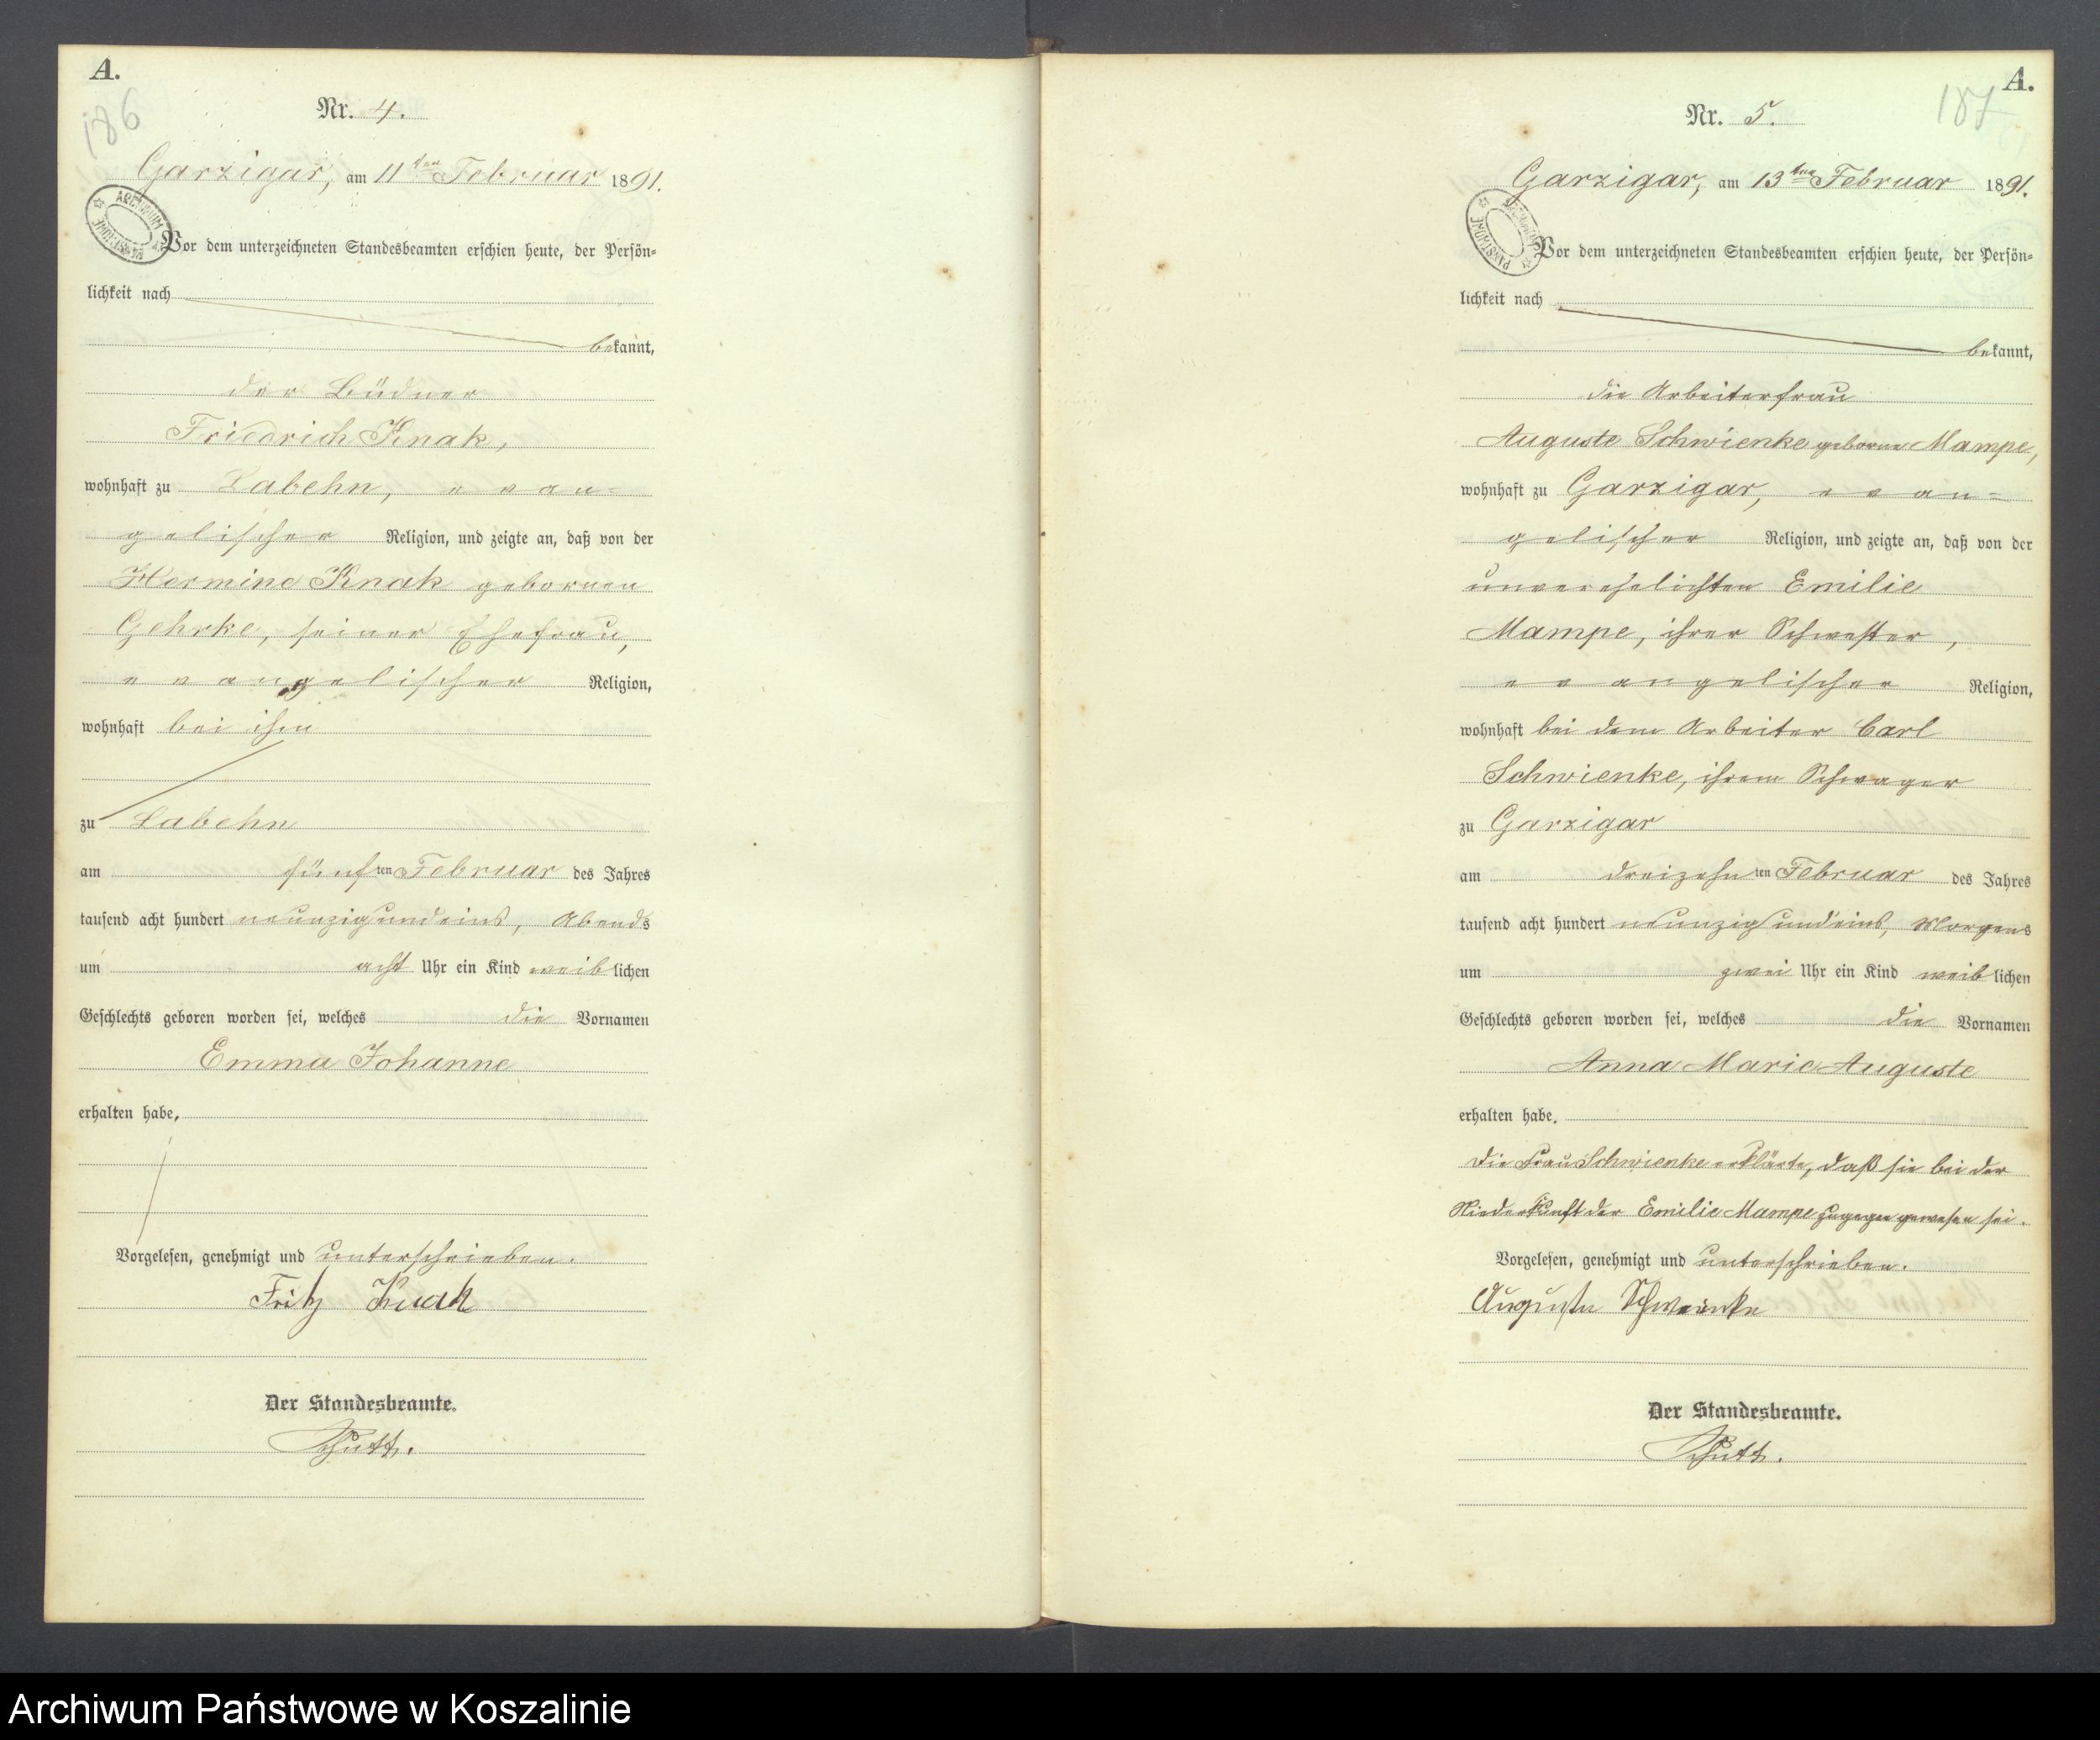 A.
186
Nr. 4.
Garzigar, am 11ten Februar 1891.
Vor dem unterzeichneten Standesbeamten erschien heute, der Persön=
lichkeit nach
bekannt,
der Büdner
Friedrich Knak,
wohnhaft zu Labehn, evan=
gelischer Religion, und zeigte an, daß von der
Hermine Knak gebornen
Gehrke, seiner Ehefrau,
evangelischer Religion,
wohnhaft bei ihm
zu Labehn
am fünften Februar des Jahres
tausend acht hundert neunzig und eins, Abends
um acht Uhr ein Kind weiblichen
Geschlechts geboren worden sei, welches die Vornamen
Emma Johanne
erhalten habe,
Vorgelesen, genehmigt und unterschrieben.
Fritz Knak
Der Standesbeamte.
A.
187
Nr. 5.
Garzigar, am 13ten Februar 1891.
Vor dem unterzeichneten Standesbeamten erschien heute, der Persön=
lichkeit nach
bekannt,
die Arbeiterfrau
Auguste Schwienke geborne Mampe,
wohnhaft zu Garzigar, evan=
gelischer Religion, und zeigte an, daß von der
unverehelichten Emilie
Mampe, ihrer Schwester,
evangelischer Religion,
wohnhaft bei dem Arbeiter Carl
Schwienke, ihrem Schwager
zu Garzigar
am dreizehnten Februar des Jahres
tausend acht hundert neunzig und eins, Morgens
um zwei Uhr ein Kind weiblichen
Geschlechts geboren worden sei, welches die Vornamen
Anna Marie Auguste
erhalten habe.
Die Frau Schwienke erklärte, daß sie bei der
Niederkunft der Emilie Mampe zugegen gewesen sei.
Vorgelesen, genehmigt und unterschrieben.
Auguste Schwienke
Der Standesbeamte.
Archiwum Państwowe w Koszalinie